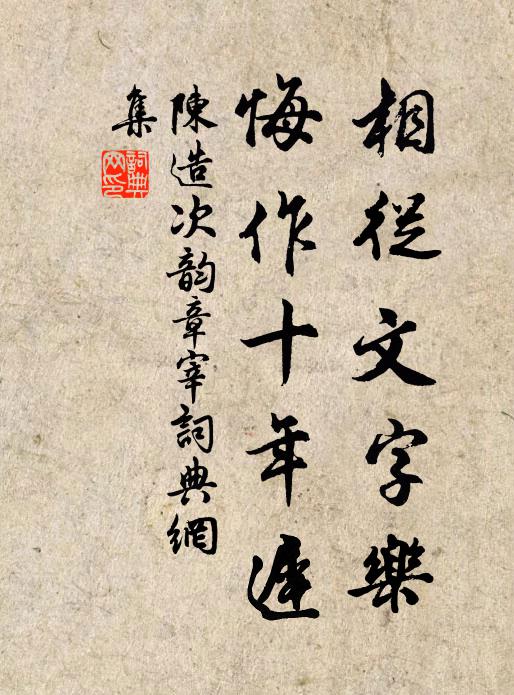 相從文字樂
悔作十年遲
陳造次韵章宰詞典網
集
詞典網印